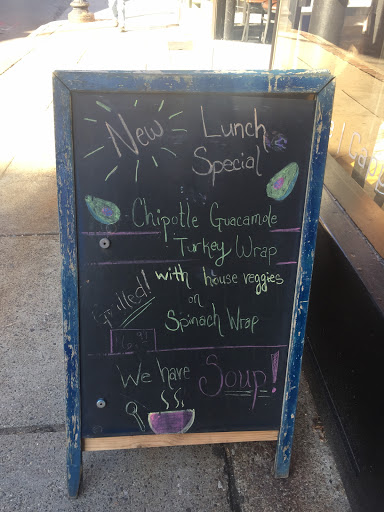 New Lunch
Special
Chipotle Guacamole
Turkey Wrap
Grilled! with house veggies
on
Spinach Wrap
We have Soup!